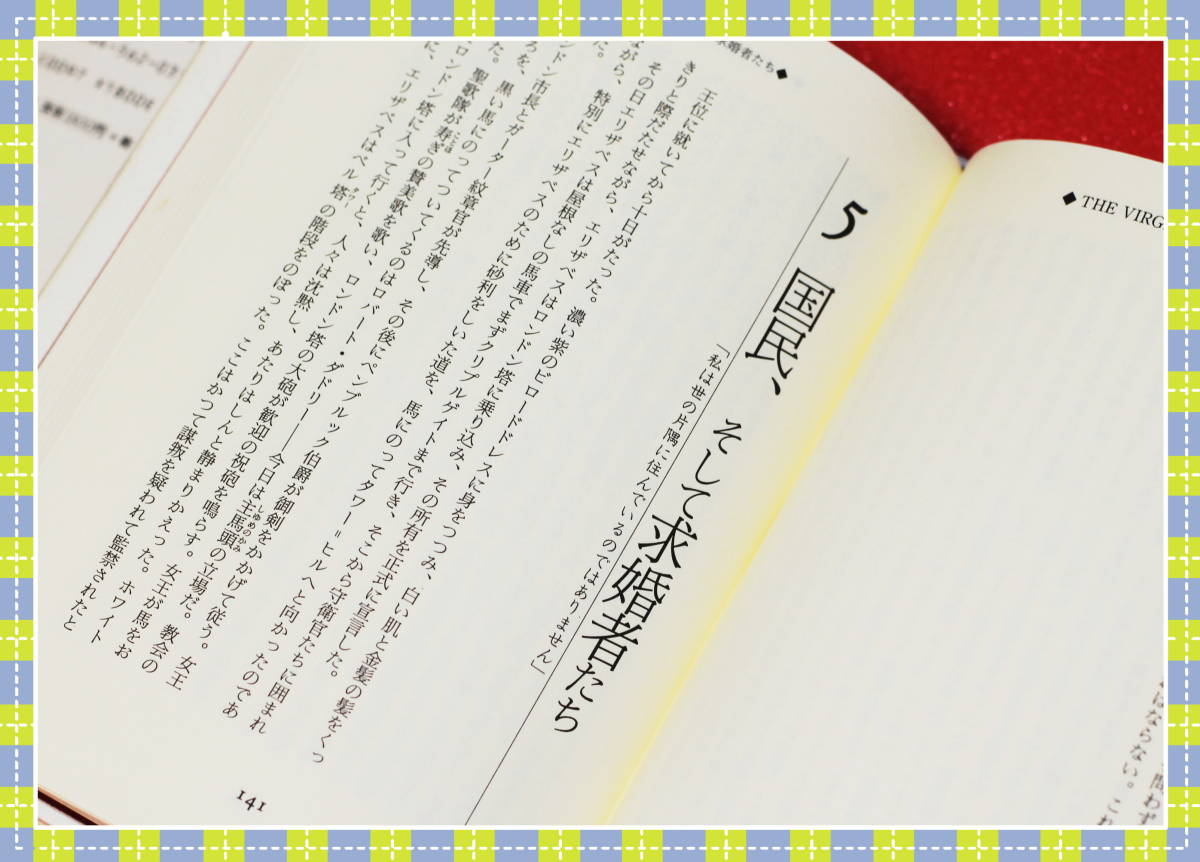 ◆ THE VIRG
問わず
ばならない。これ
求婚者たち◆
5 国民、そして求婚者たち
「私は世の片隅に住んでいるのではありません」
王位に就いてから十日がたった。濃い紫のビロードドレスに身をつつみ、白い肌と金髪の髪をくっ
きりと際だたせながら、エリザベスはロンドン塔に乗り込み、その所有を正式に宣言した。
その日エリザベスは屋根なしの馬車でまずクリプルゲイトまで行き、そこから守衛官たちに囲まれ
ながら、特別にエリザベスのために砂利をしいた道を、馬にのってタワー＝ヒルへと向かったのであ
た。
ンドン市長とガーター紋章官が先導し、その後にペンブルック伯爵が御剣をかかげて従う。女王
ろを、黒い馬にのってついてくるのはロバート・ダドリー――今日は主馬頭の立場だ。教会の
た。聖歌隊が寿ぎの賛美歌を歌い、ロンドン塔の大砲が歓迎の祝砲を鳴らす。女王が馬をお
ロンドン塔に入って行くと、人々は沈黙し、あたりはしんと静まりかえった。ホワイト
に、エリザベスはベル塔の階段をのぼった。ここはかつて謀叛を疑われて監禁されたと
141